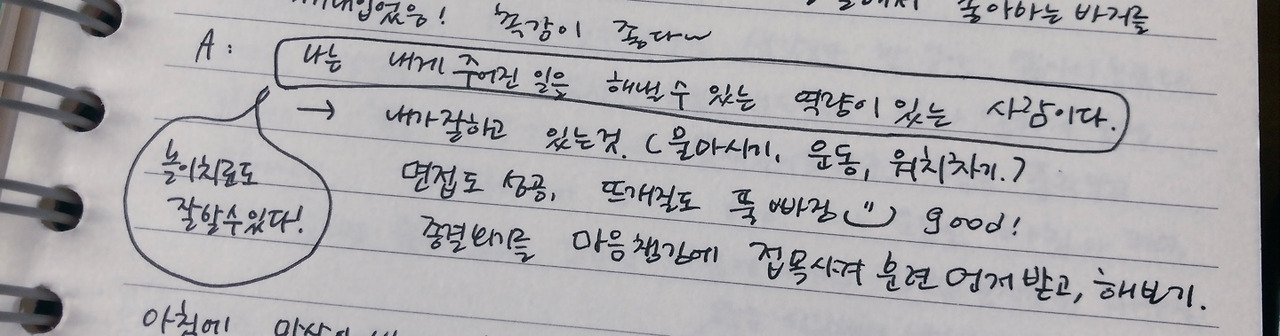 입었음! 촉감이 좋다~ 좋아하는 바지를
A: 나는 내게 주어진 일을 해낼 수 있는 역량이 있는 사람이다.
→ 내가 잘하고 있는것. (물마시기, 운동, 위치차기.)
면접도 성공, 뜨개질도 푹 빠짐 good!
종결하기를 마음챙김에 접목시켜 훈련 먼저 받고, 해보기.
놀이치료도
잘할수있다!
아침에